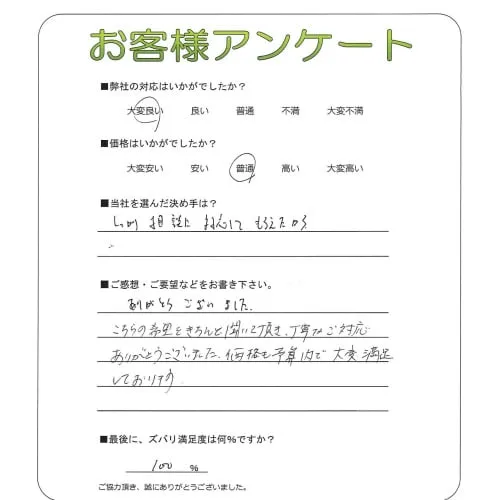 お客様アンケート
■弊社の対応はいかがでしたか？
大変良い 良い 普通 不満 大変不満
■価格はいかがでしたか？
大変安い 安い 普通 高い 大変高い
■当社を選んだ決め手は？
しっかり 相談に 対応して もらえたから
■ご感想・ご要望などをお書き下さい。
ありがとう ございました。
こちらの希望をきちんと聞いて頂き、丁寧なご対応
ありがとうございました。価格も予算内で大変満足
しております。
■最後に、ズバリ満足度は何％ですか？
100 %
ご協力頂き、誠にありがとうございました。